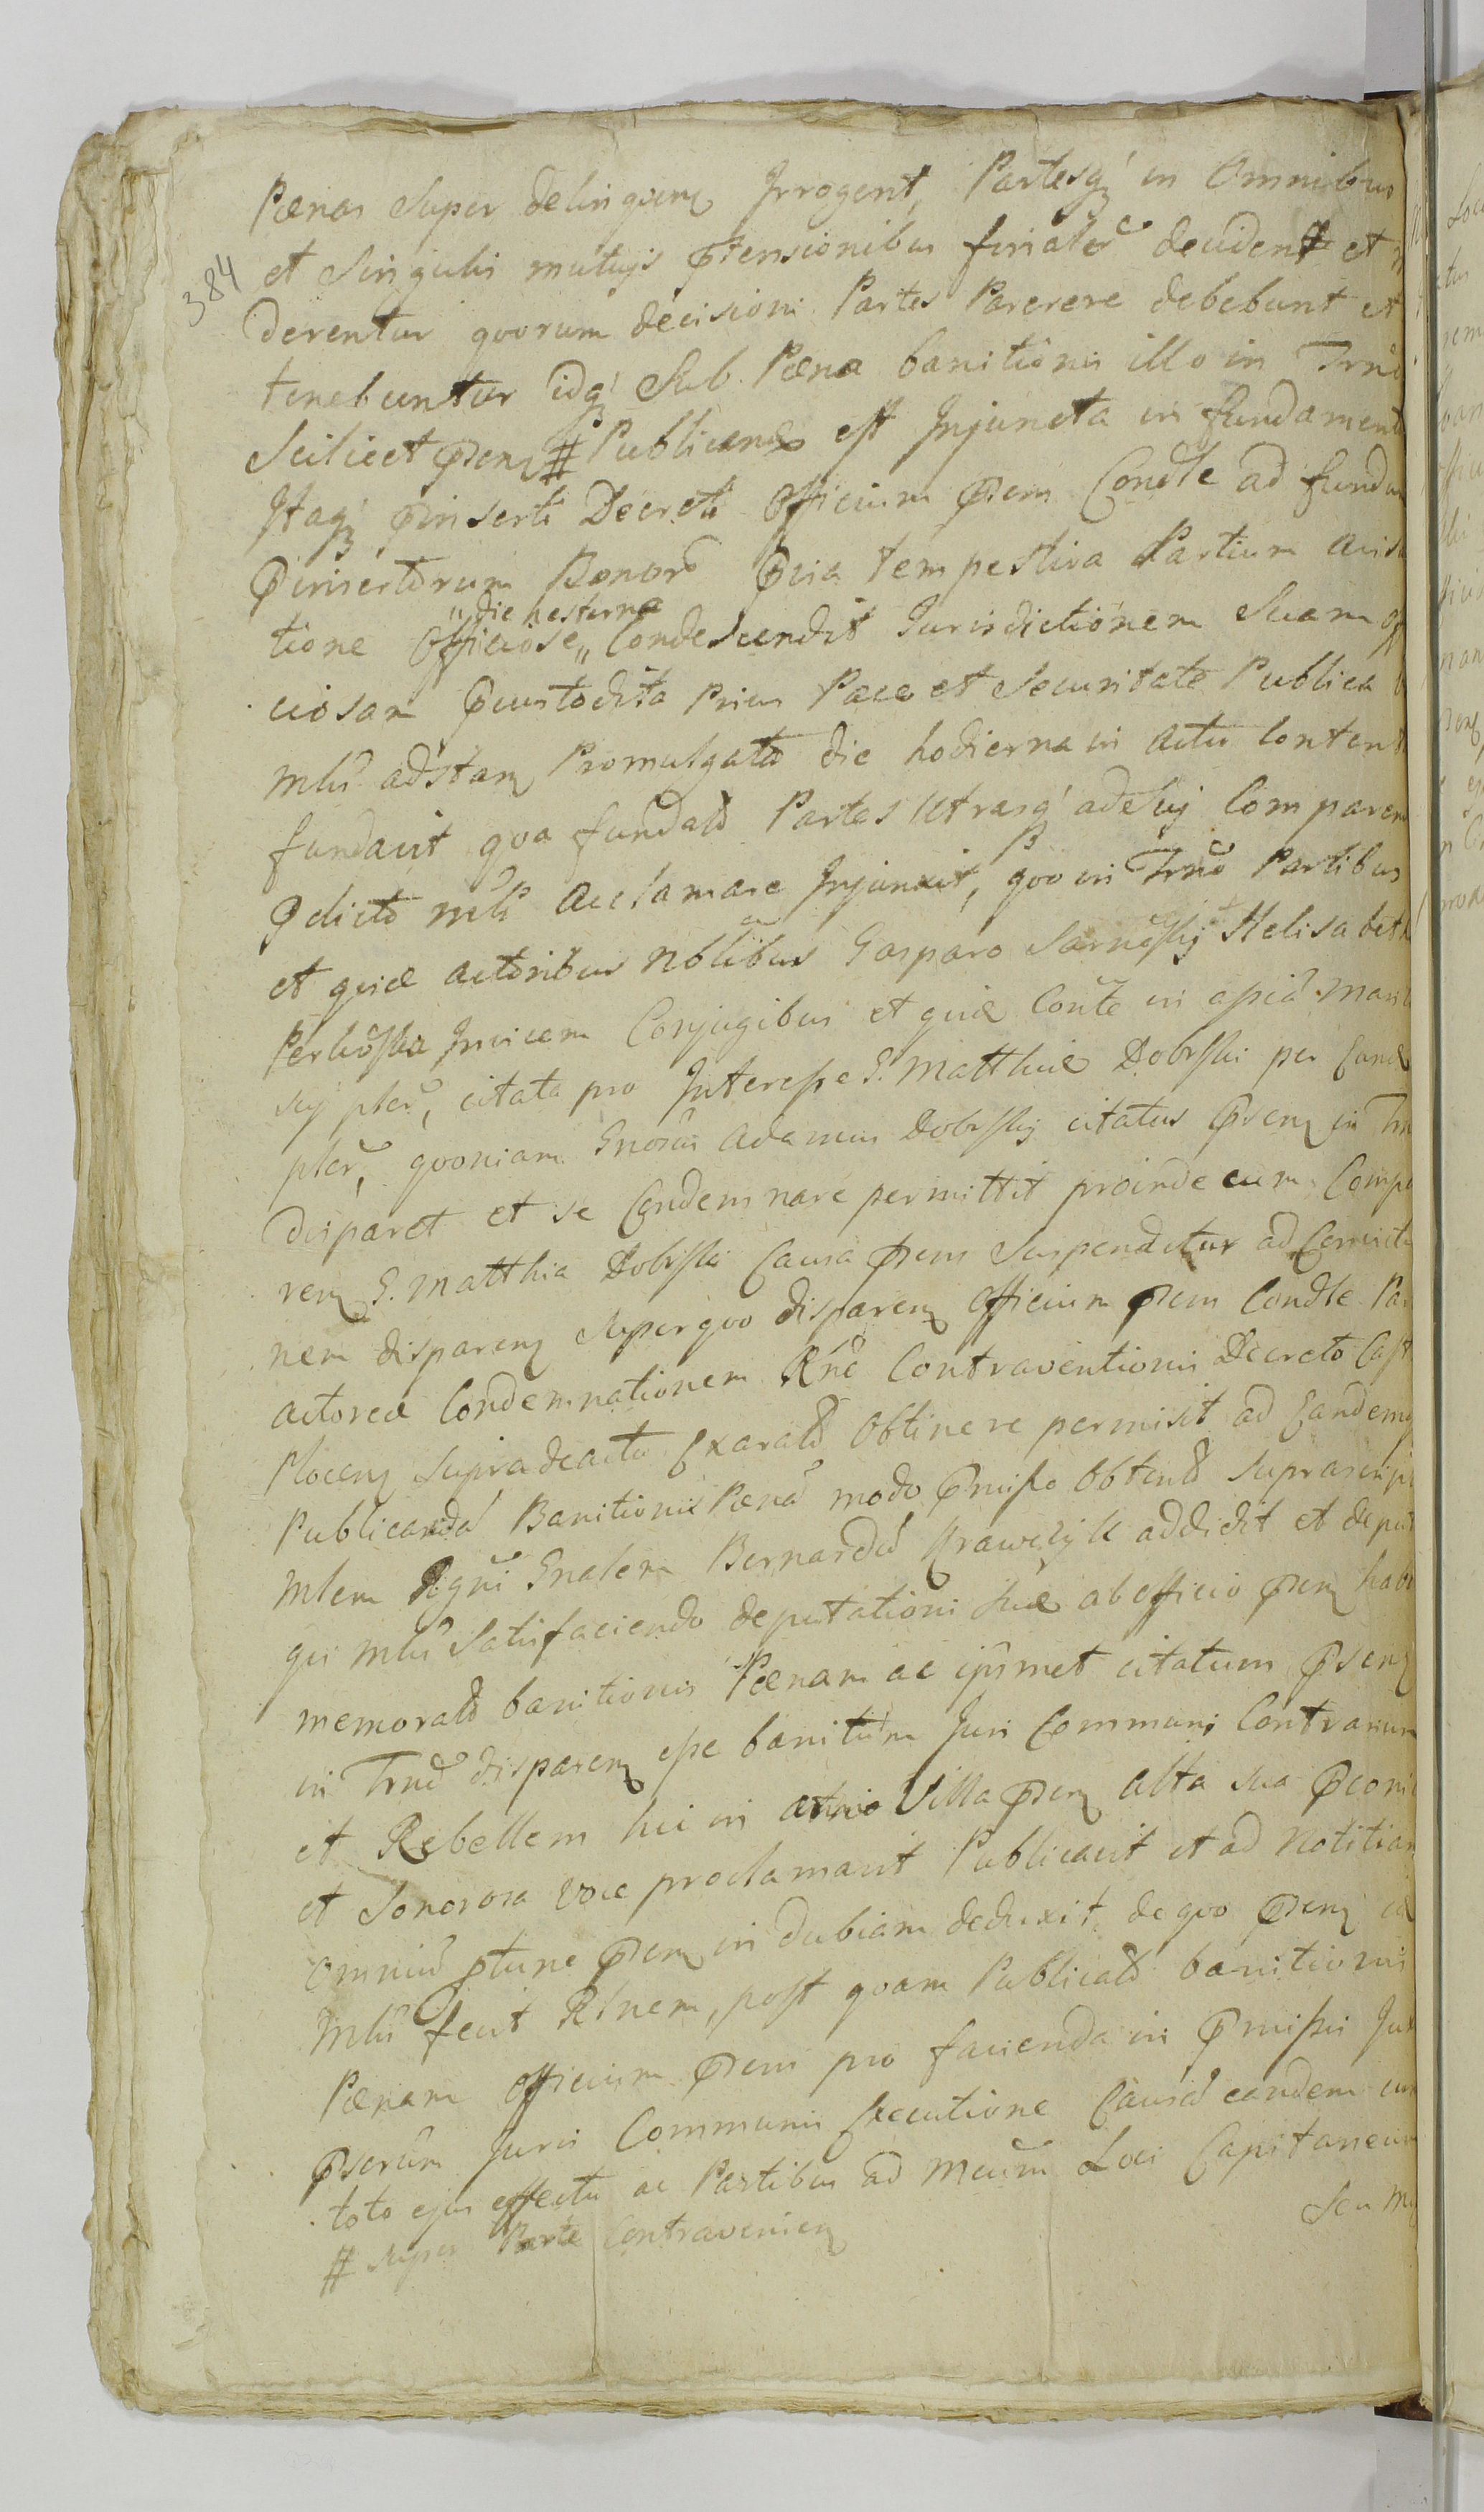 Pœnas super delinquen Irrogent, Partesq in Omnibus
et Singulis mutujs Ptensionibus finaler decident et
384
derentur quorum decisioni Partes Parerere debebunt et
tenebuntur idq Sub Pœna banitionis illo in Trno
Scilicet Psen # Publicandæ est Injuncta in fundament
Itaq, Pinserti Decreti Officium Psens Condle ad fundum
Pinsertorum Bonor Pvia tempestiva Partium
"die hesterna
tione Officiose " Condescendit Iurisdictionem Suam
ciosam Pcustodita Prius Pace et Securitate Publica
Mlis adstan Promulgata die hodierna in actu Content
fundavit qua fundata Partes Utrasq adesse Comparen
Pdicto Mli acclamare Injunxit, quo in Trno Partibus
et quidē actoribus Noblibus Gasparo Helisabeth
Invicem Conjugibus et quidē Conte in assia Mariti
suj pler, citata pro Interesse G. Matthiæ Dobrski per
pler, quoniam Gnosus Adamus Dobrskij citatus Psen in Trn
disparet et se Condemnare permittit proinde cum Compa
ren G. Matthia Dobrski Causa Psens Suspenditur ad Convictio
nem disparen Super quo disparen Officium Psens Condle Par
actorea Condemnationem Rne Contraventionis Decreto Cast
Plocen Supradeacto Exarato Obtinere permisit ad Eandemq
Publicanda Banitionis Pœna modo Pmisso Obtenta Suprascrip
Mlem Rgni Gnalem Bernardu Krawczyk addidit et depu
qui Mlis Satisfaciendo deputationi suæ ab officio Psen
memorata banitionis Pœnam ac ipsmet citatum Psen
in Trno disparen esse banitum Juri Communi Contrarium
et Rebellem hic in Villa Psen alta sua Pconica
et Sonorosa Voce proclamavit Publicavit et ad Notitiam
omniu ptunc Psen in dubiam deduxit, de quo Psen id
Mlis fecit Rlnem, post quam Publicata banitionis
Pœnam Officium Psens pro facienda in Pmissis
Pserum Juris Communis Executione Causa eandem cum
toto ejus effectu ac Partibus ad Mcum Loci Capitaneum
Seu
# super Parte Contravenien